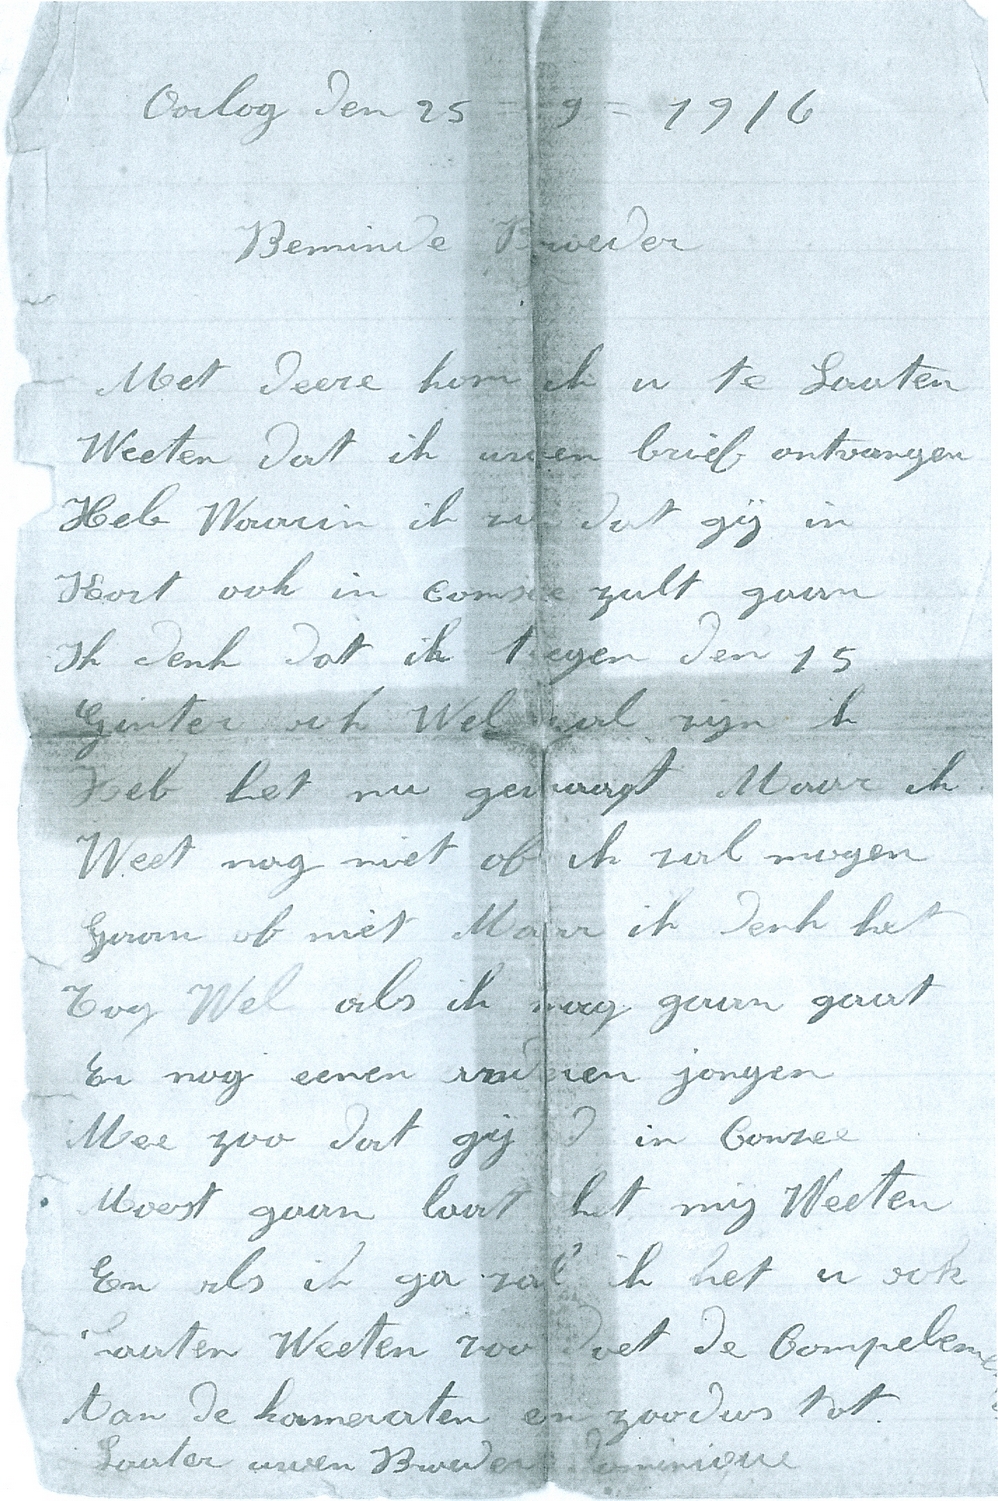 Oorlog den 25 = 9 = 1916
Beminde Broeder
Met deeze kom ik u te Laaten
Weeten dat ik uwen brief ontvangen
Heb Waarin ik zie dat gij in
Kort ook in Comsee zult gaan
Ik denk dat ik tegen den 15
Ginter ook Wel zal zijn ik
Heb het nu gevraagt Maar ik
Weet nog niet of ik zal mogen
Gaan of niet Maar ik denk het
Tog Wel als ik mag gaan gaat
Er nog eenen anderen jongen
Mee zoo dat gij in Consee
Moest gaan laat het mij Weeten
En als ik ga zal ik het u ook
Laaten Weeten zoo doet de Compelemen
Aan de kameraten en zoodus tot
Laater uwen Broeder Dominique